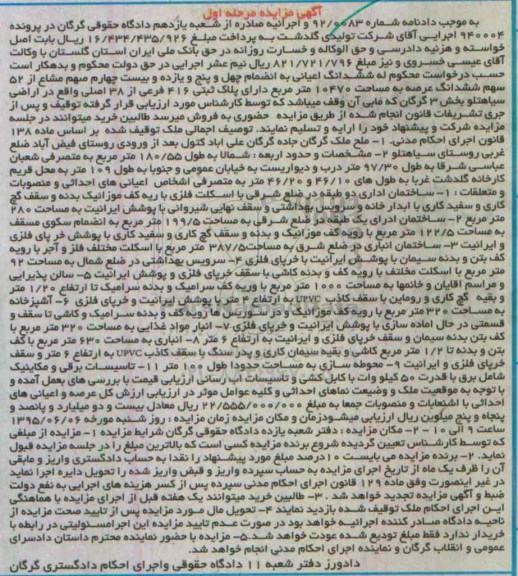 آگهی مزایده مرحله اول
به موجب دادنامه شماره ۹۲/۰۰۸۳ و اجرائیه صادره از شعبه یازدهم دادگاه حقوقی گرگان در پرونده
۹۴۰۰۰۴ اجرایی آقای شرکت تولیدی گلدشت به پرداخت مبلغ ۱۶/۴۳۴/۴۳۵/۹۲۶ ریال بابت اصل
خواسته و هزینه دادرسی و حق الوکاله و خسارت روزانه در حق بانک ملی ایران استان گلستان با وکالت
آقای عیسی خسروی و نیز مبلغ ۸۲۱/۷۲۱/۷۹۶ ریال نیم عشر اجرایی در حق دولت محکوم و بدهکار است
حسب درخواست محکوم له ششدانگ اعیانی به انضمام چهل و پنج و یازده و بیست چهارم سهم مشاع از ۵۲
سهم ششدانگ عرصه به مساحت ۱۰۴۷۰ متر مربع دارای پلاک ثبتی ۴۱۶ فرعی از ۳۸ اصلی واقع در اراضی
سیاهتلو بخش ۳ گرگان که مابی آن وقف میباشد که توسط کارشناس مورد ارزیابی قرار گرفته توقیف و پس از
جری تشریفات قانون انجام شده از طریق مزایده حضوری به فروش میرسد طالبین خرید میتوانند در جلسه
مزایده شرکت و پیشنهاد خود را ارایه و تسلیم نمایند. توصیف اجمالی ملک توقیف شده بر اساس ماده ۱۳۸
قانون اجرای احکام مدنی. ۱- طح ملک گرگان جاده گرگان علی اباد کتول بعد از ورودی روستای فیض آباد ضلع
غربی روستای سیاهتلو ۲- مشخصات و حدود اربعه: شمالا به طول ۱۸۰/۵۵ متر مربع به متصرفی شعبان
عباسی شرقا به طول ۹۷/۳۰ متر درب و دیواریست به خیابان عمومی و جنوبا به طول ۱۰۹ متر به محل قریم
کارخانه گلدشت غرب به طول های ۴۶/۱۰ و ۴۶/۲۰ متر به متصرفی اشخاص اعیانی های احداثی و منصوبات
و متعلقات: ۱- ساختمان اداری دو طبقه در ضلع شرقی با اسکلت فلزی با ریه کف موزائیک بدنه و سقف گچ
کاری و سفید کاری با ابدار خانه و سرویس بهداشتی و سقف نهایی شیروانی با پوشش ایرانیت به مساحت ۲۸۰
متر مربع ۲- ساختمان ادرای یک طبقه در ضلع شرقی به مساحت ۱۹۹/۵ متر مربع به انضمام سکوی مسقف
به مساحت ۱۲۲/۵ متر مربع با رویه کف موزائیک و بدنه و سقف گچ کاری و سفید کاری با پوشش خر پای فلزی
و ایرانیت ۳- ساختمان انباری در ضلع شرق به مساحت ۳۸۷/۵ متر مربع با اسکلت مختلف فلز و آجر با رویه
کف بتن و بدنه سیمان با پوشش ایرانیت با خرپای فلزی ۴- سرویس بهداشتی در ضلع شمال به مساحت ۹۲
متر مربع با اسکلت مخلتف با رویه کف و بدنه کاشی با سقف خرپای فلزی و پوشش ایرانیت ۵- سالن پذیرایی
و مراسم اقایان و خانمها به مساحت ۱۰۰۰ متر مربع با وریه کف سرامیک و بدنه سرامیک تا ارتفاع ۱/۲۰ متر
و بقیه گچ کاری و رومابن با سقف کاذب UPVC به ارتفاع ۴ متر با پوشش ایرانیت و خرپای فلزی ۶- آشپزخانه
به مساحت ۳۲۰ متر مربع با رویه کف موزائیک و در سوریس ها رویه کف و بدنه سرامیک و کاشی تا سقف و
قسمتی در حال اماده سازی با پوشش ایرانیت و خرپای فلزی ۷- انبار مواد غذایی به مساحت ۳۲۰ متر مربع با
کف بتن بدنه سیمان و سقف خرپای فلزی و ایرانیت به ارتفاع ۶ متر ۸- انباری به مساحت ۶۳۰ متر مربع با کف
بتن و بدنه تا ۱/۲ متر مربع کاشی و بقیه سیمان کاری و پدر سنگ با سقف کاذب UPVC به ارتفاع ۶ متر و سقف
خرپای فلزی و ایرانیت ۹- محوطه سازی به مساحت حدودا طول ۱۰۰ متر ۱۱- تاسیسات برقی و مکاینیک
شامل برق با قدرت ۵۰ کیلو وات با کابل کشی و تاسیسات اب رسانی ارزیابی قیمت با بررسی های بعمل آمده و
با توجه به موقعیت ملک و وضعیت نماهای احداثی و کلیه عوامل موثر در ارزیابی ارزش کل عرصه و اعیانی های
احداثی با اشتعابات و منصوبات جمعا به مبلغ ۲۲/۵۵۵/۰۰۰/۰۰۰ ریال معادل بیست و دو میلیارد و پانصد و
پنجاه و پنج میلیون ریال ارزیابی میشودزمان و مکان مزایده زمان مزایده: روز شنبه مورخه ۱۳۹۵/۰۶/۰۶
ساعت ۹ الی ۱۰ - ۲- مکان مزایده: دفتر شعبه یازده دادگاه حقوقی گرگان شرایط مزایده ۱- مزایده از مبلغی
که توسط کارشناس تعیین گردیده شروع برنده مزایده کسی است که بالاترین مبلغ را در جلسه مزایده قبول
نماید. ۲- برنده مزایده می بایست ۱۰درصد مبلغ مورد پیشنهاد را نقدا به حساب دادگستری واریز و مابقی
آن را ظرف یک ماه از تاریخ اجرای مزایده به حساب سپرده واریز و قبض واریز شده را تحویل دایره اجرا نماید
در غیر اینصورت وفق ماده ۱۲۹ قانون اجرای احکام مدنی سپرده پس از کسر هزینه های اجرایی به نفع دولت
ضبط و آگهی مزایده تجدید خواهد شد. ۳- طالبین خرید میتوانند یک هفته قبل از اجرای مزایده با هماهنگی
این اجرای احکام ملک توقیف شده بازدید نمایند ۴- تحویل مال مورد مزایده پس از تایید صحت مزایده از
ناحیه دادگاه صادر کننده اجرائیه خواهد بود در صورت عدم تایید مزایده این اجرامسئولیتی در رابطه با
خریدار ندارد فقط مبلغ تودیع شده عودت خواهد شد.۵- مزایده با حضور نماینده محترم داستان دادسرای
عمومی و انقلاب گرگان و نماینده اجرای احکام مدنی انجام خواهد شد.
دادورز دفتر شعبه ۱۱ دادگاه حقوقی واجرای احکام دادگستری گرگان